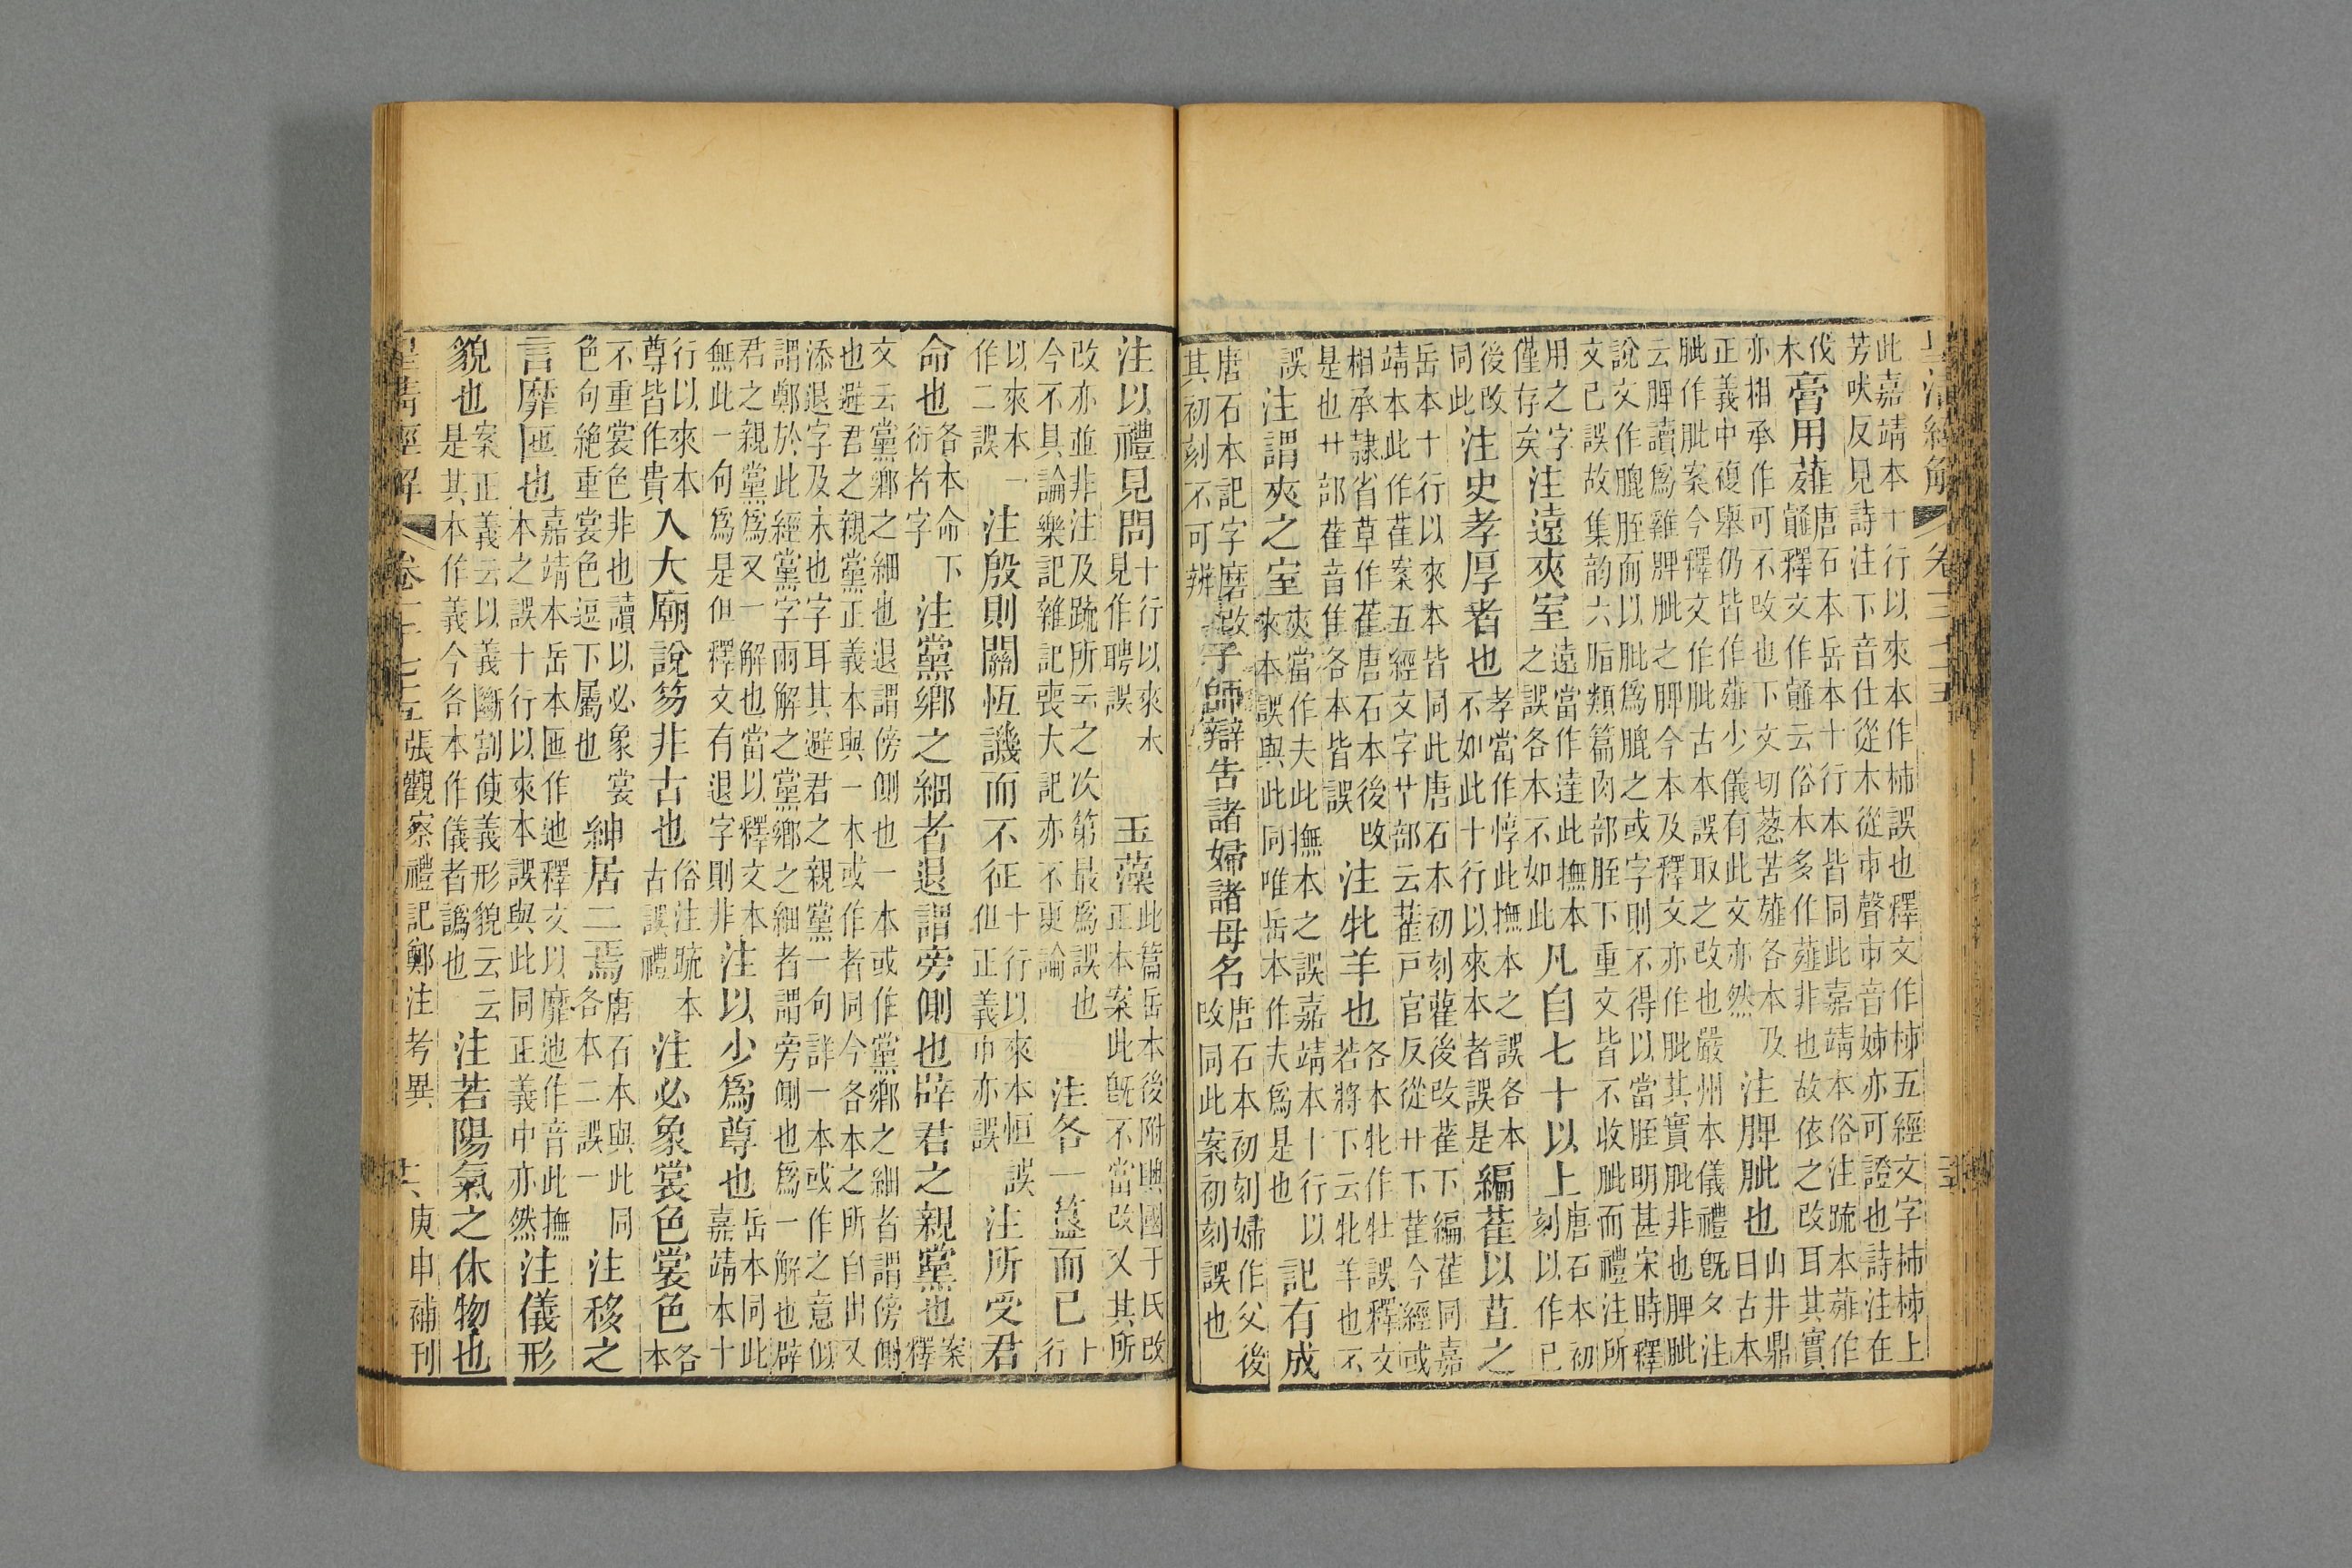 皇清經解 卷
此嘉靖本十行以來本作柿誤也釋文作柹五經文字柿柹上
芳吠反見詩注下音仕從木從巿聲巿音姊亦可證也詩注在
伐木膏用薤唐石本岳本十行本皆同此嘉靖本俗注疏本薤作
䪥釋文作䪥云俗本多作薤非也故依之改耳其實
亦相承作可不改也下文切葱苦薤各本及
正義中複舉仍皆作薤少儀有此文亦然注脾䏶也山井鼎曰古本
䏶作肶案今釋文作肶古本誤取之改也嚴州本儀禮既夕注
云脾讀爲雞脾䏶之脾今本及釋文亦作肶其實肶非也脾䏶
說文作膍胵而以肶爲膍之或字則不得以當胵明甚宋時釋
文已誤故集韵六脂類篇肉部胵下重文皆不收䏶而禮注所
用之字僅存矣注遠夾室遠當作達此撫本之誤各本不如此凡自七十以上唐石本初刻以作已
後改同此注史孝厚者也孝當作惇此撫本之誤各本不如此十行以來本者誤是編萑以苴之
岳本十行以來本皆同此唐石本初刻雚後改萑下編萑同嘉
靖本此作萑案五經文字艹部云雚戸官反從艹下萑今經或
相承隸省草作萑唐石本後改是也廿部萑音隹各本皆誤注牝羊也各本牝作牡誤釋文若將下云牝羊也不
誤注謂夾之室夾當作夫此撫本之誤嘉靖本十行以來本誤與此同唯岳本作夫爲是也記有成
唐石本記字磨改其初刻不可辨子師辯告諸婦諸母名唐石本初刻婦作父後改同此案初刻誤也
注以禮見問十行以來本見作聘誤玉藻此篇岳本後附興國于氏改正本案此旣不當改又其所
改亦並非注及疏所云之次第最爲誤也今不具論樂記雜記喪大記亦不更論注各一簋而已十行
以來本一作二誤注殷則關恆譏而不征十行以來本恒誤但正義巾亦誤注所受君
命也各本命下衍者字注黨鄉之細者退謂旁側也辟君之親黨也案釋
文云黨鄉之細也退謂傍側也一本或作黨鄉之細者謂傍側
也避君之親黨正義本與一本或作者同今各本之所自出又
添退字及末也字耳其避君之親黨一句詳一本或作之意似
謂鄭於此經黨字兩解之黨鄉之細者謂旁側也爲一解也辟
君之親黨爲又一解也當以釋文本
無此一句爲是但釋文有退字則非注以少爲尊也岳本同此嘉靖本十
行以來本尊皆作貴入大廟說笏非古也俗注疏本古誤禮注必象裳色裳色各本
不重裳色非也讀以必象裳色句絕重裳色逗下屬也紳居二焉唐石本與此同各本二誤一注移之
言靡匜也嘉靖本岳本匜作迆釋文以靡迆作音此撫本之誤十行以來本誤與此同正義中亦然注儀形
貌也案正義云以義斷割使義形貌云云是其本作義今各本作儀者譌也注若陽氣之休物也
皇清經解 卷一千七十五張觀察禮記鄭注考異 六 庚申補刊